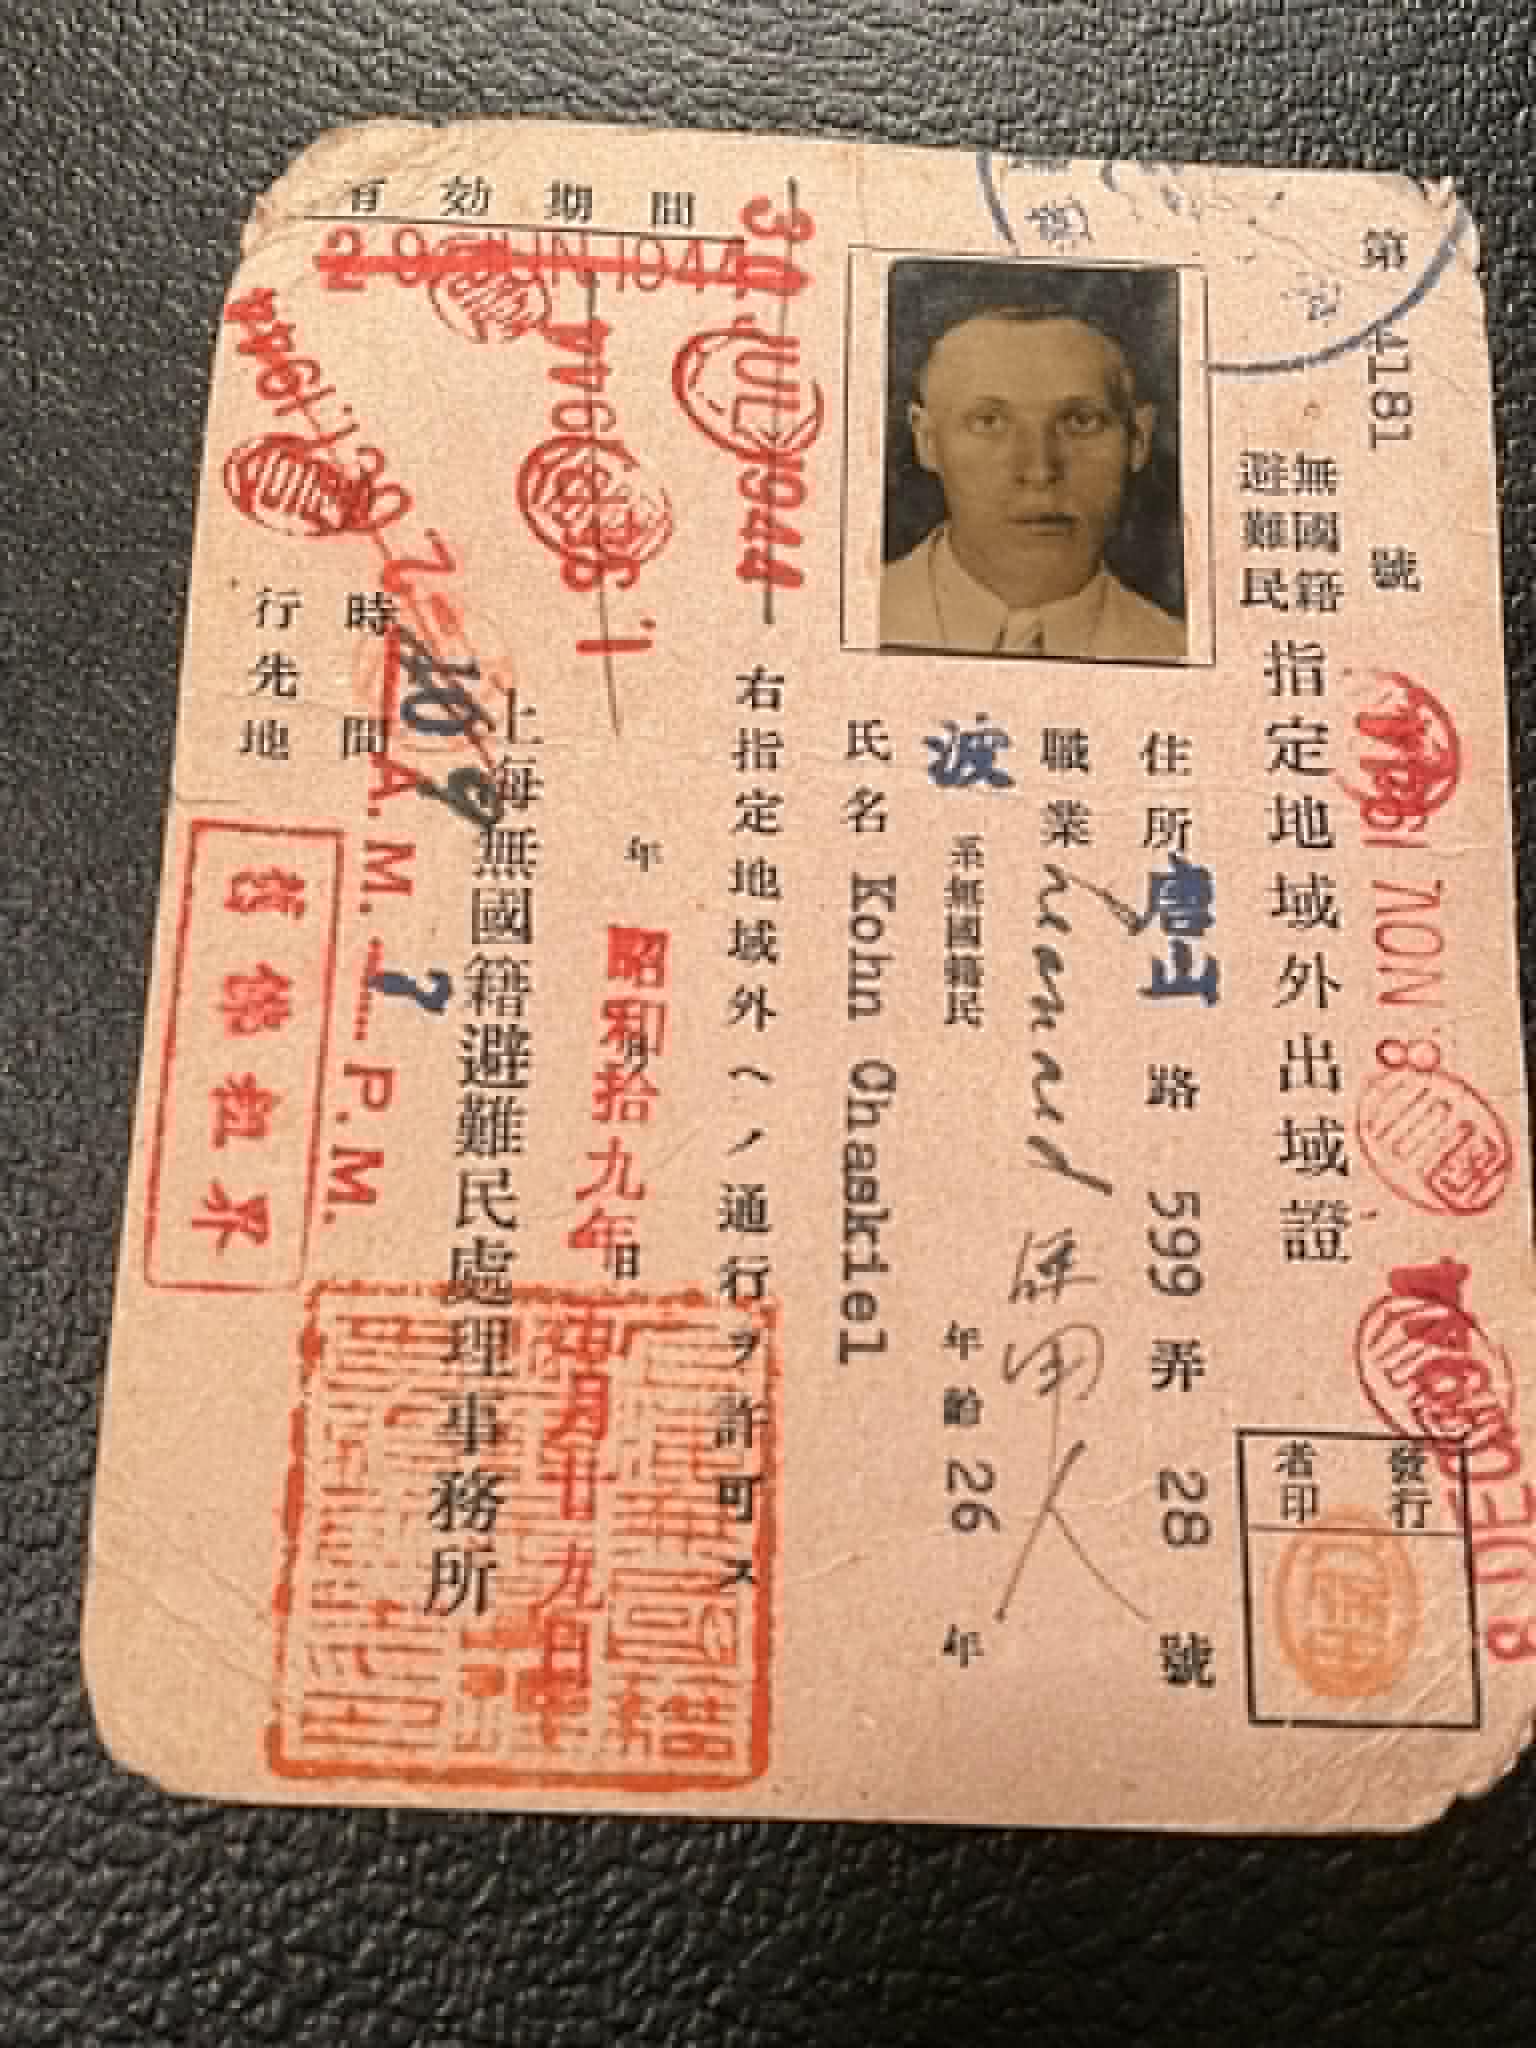 第 4181 號
無國籍
避難民
指定地域外出域證
發行
者印
住所 唐山 路 599 弄 28 號
職業
波 系無國籍民 年齡 26 年
氏名 Kohn Chaskiel
右指定地域外ヘノ通行ヲ許可ス
年 月 日
昭和拾九年
月廿九日
上海無國籍避難民處理事務所
有効期間
29 JUN 1944
30 JUL 1944
8 NOV 1944
時間 A.M. P.M.
行先地
舊佛租界